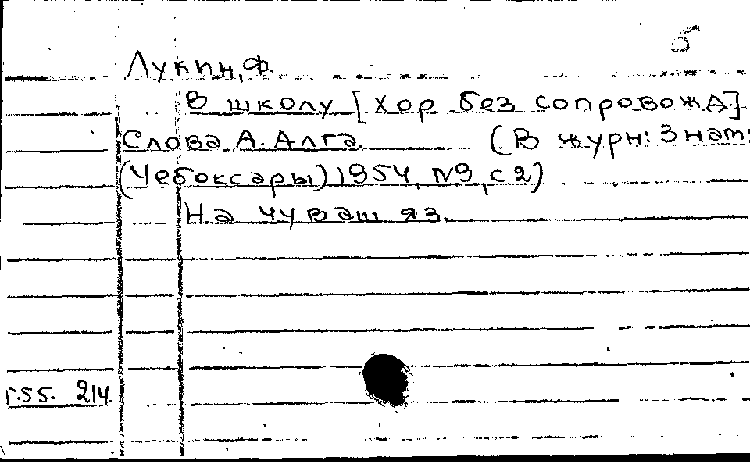 5
Лукин, Ф.
В школу [Хор без сопровожд]
Слова А. Алга (В журн: Знат:
(Чебоксары) 1954, №9, с 2)
На чуваш яз.
г. 55. 214